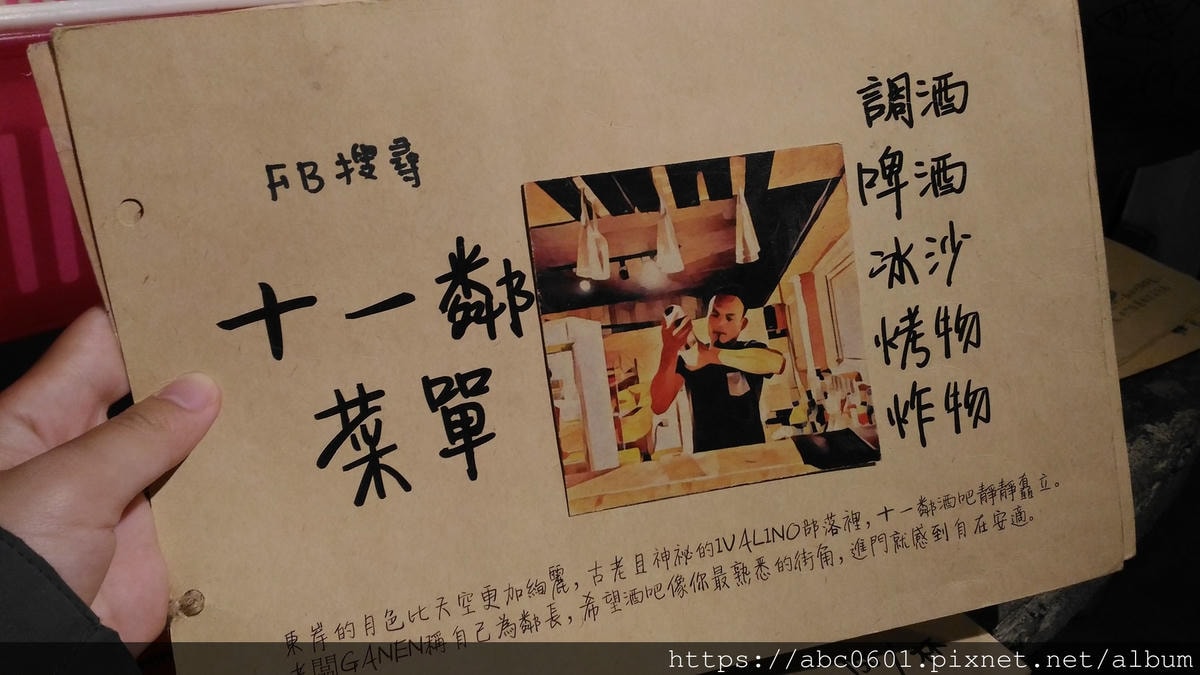 FB搜尋
十一鄰
菜單
調酒
啤酒
冰沙
烤物
炸物
東岸的月色比天空更加絢麗，古老且神祕的IVALINO部落裡，十一鄰酒吧靜靜矗立。
老闆GANEN稱自己為鄰長，希望酒吧像你最熟悉的街角，進門就感到自在安適。
https://abc0601.pixnet.net/album